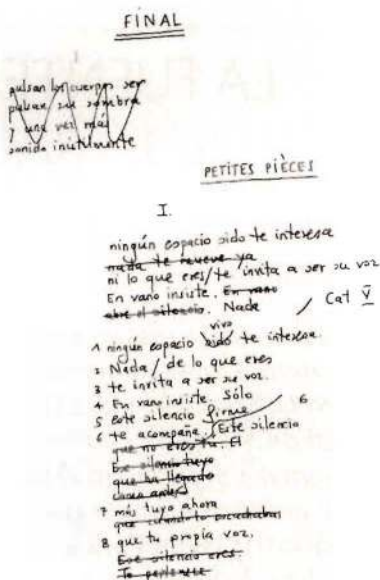 FINAL
pulsan los cuerpos ser
pulsan su sombra
y una vez más
sonido inútilmente
PETITES PIÈCES
I.
ningún espacio sido te interesa
nada te mueve ya
ni lo que eres/te invita a ser su voz
En vano insiste. En vano
abre el silencio. Nada
/ Cat V
vivo
1 ningún espacio sido te interesa.
2 Nada/de lo que eres
3 te invita a ser su voz.
4 En vano insiste. Sólo
5 este silencio firme 6
6 te acompaña. Este silencio
que no eres tú. El
Ese silencio tuyo
que ha llegado
como antes
7 más tuyo ahora
que cuando lo escuchabas
8 que tu propia voz.
Ese silencio eres.
Te pertenece